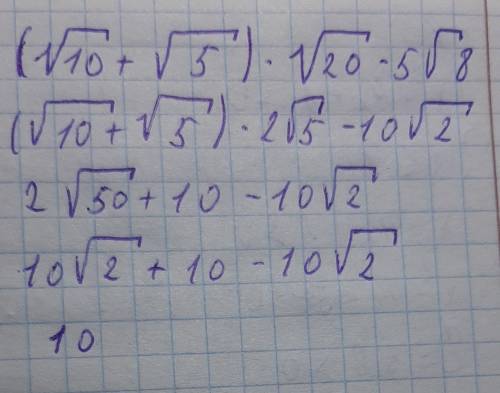 (√10 + √5) · √20 - 5√8
(√10 + √5) · 2√5 - 10√2
2√50 + 10 - 10√2
10√2 + 10 - 10√2
10